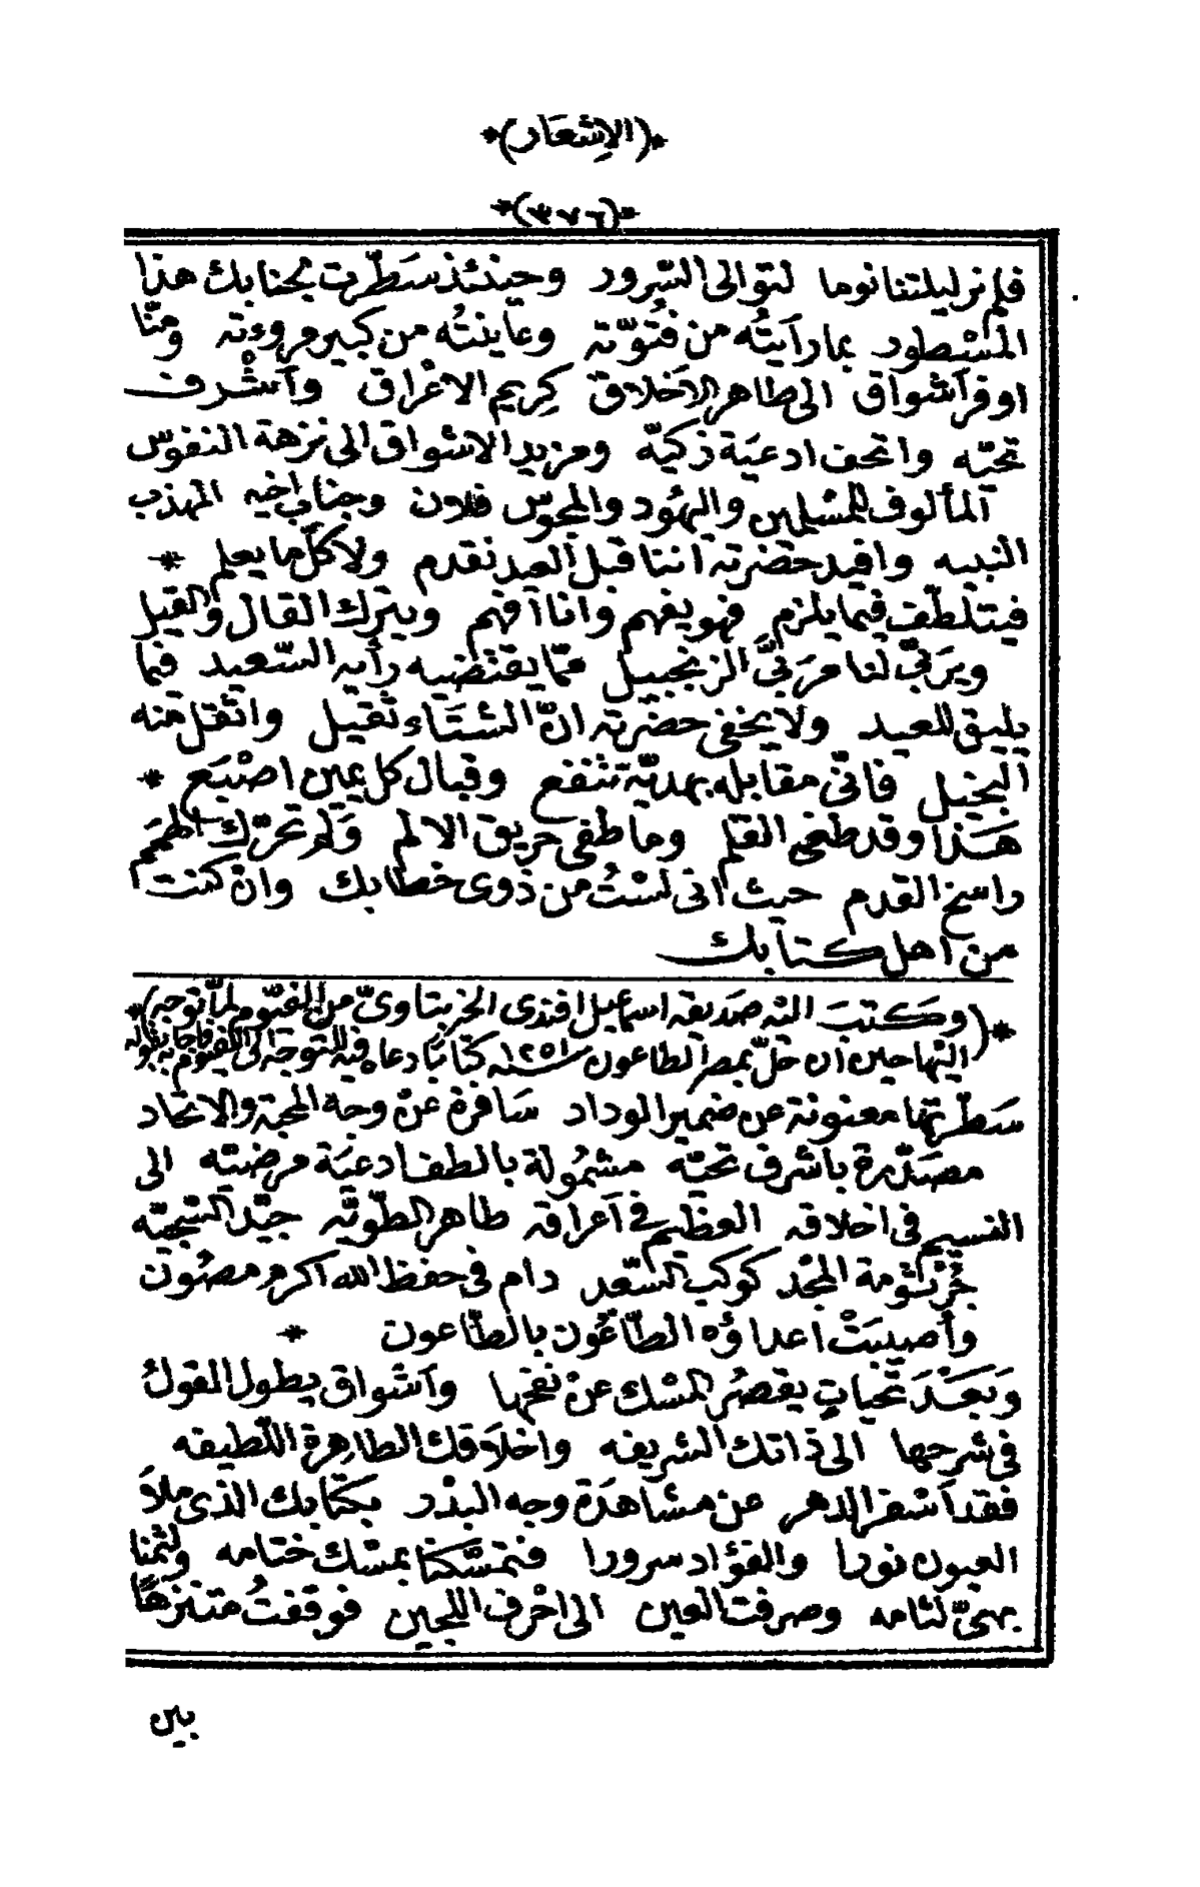 *(الإشعار)*
*(٣٧٦)*
فلم نر ليلتنا نوما لتوالى السّرور وحينئذ سَطّرت لجنابك هذا
المسْطور بما رأيتُه من فُتوّته وعاينتُه من كبير مروءته ومنّا
اوفر أشواق الى طاهر الأخلاق كِريم الاعْراق وأشْرف
تحيّه واتحف ادعيَة ذكيّه ومزيد الاشواق الى نزهة النفوس
المألوف للمسْلمين واليهُود والمجوس فلان وجناب اخيه المهذب
النبيه وافيد حضرته اننا قبل العيد نقدم ولا كلّ ما يعلم *
فيتلطّف فيما يلزم فهو يفهم وانا افهم ويترك القال والقيل
ويرَبّى لنا مرَبّىَ الزنجبيل ممّا يقتضيه رأيه السّعيد فما
يليق للعيد ولا يخفى حضرته انّ الشتَاء ثقيل واثقل منه
البخيل فانّى مقابله بهديّة تنفع وقبال كل عين اصْبَع *
هَذا وقد طغى القلم وما طفى حريق الالم وَلم تحرّك الهمَم
راسخ القدم حيث انى لسْتُ من ذوى خطابك وانْ كنت
من اهل كتابك
*(وكتبَ اليْه صَديقه اسماعيل افندى الخربتاوىّ من الفيّوم لمّا توجه)*
(اليْها حين ان حلّ بمصر الطاعون سنة ١٢٥١ كتابًا دعاه فيْه للتوجّه الى الفيّوم فاجابه بقوله
سَطّرتها معنونة عن ضمير الوداد سَافرة عنْ وجه المحبّة والاتحاد
مصَدّرة باشرف تحيّه مشمُولة بالطف ادعيَة مرضيّه الى
النسيم فى اخلاقه العظيم فى أعراقه طاهر الطّويّه جيّد السّجيّه
جُرْثومة المجْد كوكب السّعد دام فى حفظ الله اكرم مصُون
وأصيبَتْ اعداؤه الطّاعُون بالطّاعون *
وَبَعَدْ تحياتٍ يقصُر المسْك عنْ نفحها وأشواق يطول المقولُ
فى شرحها الى ذاتك الشريفه واخلاَقك الطاهِرة اللّطيفه
فقد أسْفر الدهر عن مشاهدَة وجه البدْر بكتابك الذى ملأَ
العيون نورا والفؤاد سرورا فتمسّكنا بمسْك ختامه ولثمنا
بهىّ لثامه وصرفت العين الى احْرف اللجين فوقفتُ متنزهًا
بين